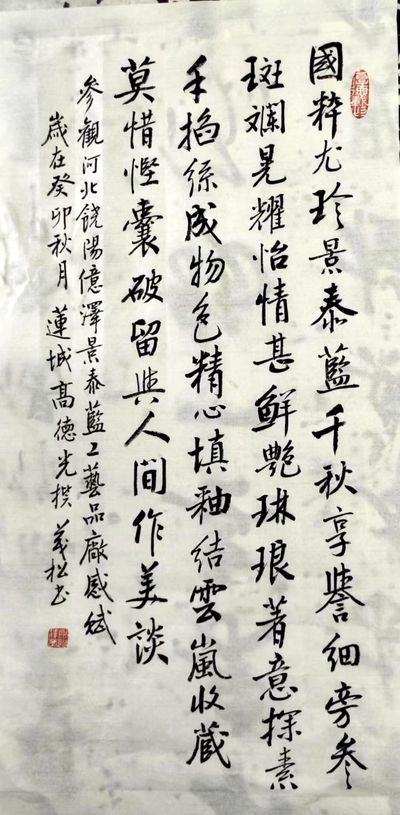 國粹尤珍景泰藍千秋享譽細旁參
斑斕晃耀怡情甚鮮艷琳琅著意探素
手掐絲成物色精心填釉結雲嵐收藏
莫惜慳囊破留與人間作美談
參觀河北饒陽億澤景泰藍工藝品廠感賦
歲在癸卯秋月蓮城高德光撰義松书